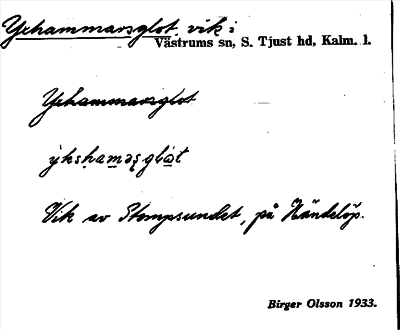 Yxhammarsglot, vik i
Västrums sn, S. Tjust hd, Kalm. l.
Yxhammarsglot
Vik av Stompsundet, på Händelöp.
Birger Olsson 1933.